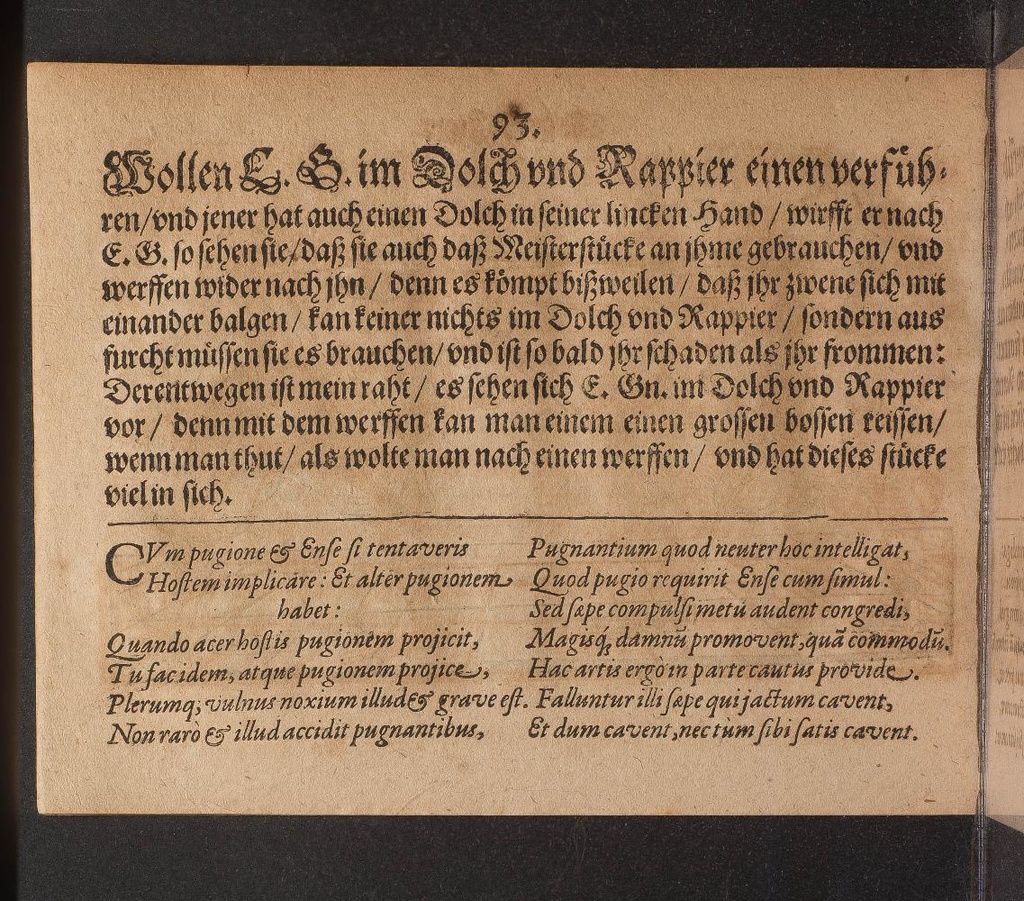 93.
Wollen E. G. im Dolch vnd Rappier einen verfüh-
ren/vnd jener hat auch einen Dolch in seiner lincken Hand / wirfft er nach
E. G. so sehen sie/daß sie auch daß Meisterstücke an jhme gebrauchen/ vnd
werffen wider nach jhn / denn es kömpt bißweilen / daß jhr zwene sich mit
einander balgen / kan keiner nichts im Dolch vnd Rappier / sondern aus
furcht müssen sie es brauchen/ vnd ist so bald jhr schaden als jhr frommen:
Derentwegen ist mein raht / es sehen sich E. Gn. im Dolch vnd Rappier
vor / denn mit dem werffen kan man einem einen grossen bossen reissen/
wenn man thut/ als wolte man nach einen werffen / vnd hat dieses stücke
viel in sich.
CVm pugione & Ense si tentaveris
Hostem implicáre: Et altér pugionem
habet:
Quando acer hostis pugioném projicit,
Tu fac idem, atque pugionem projice,
Plerumq; vulnus noxium illud & grave est.
Non raro & illud accidit pugnantibus,
Pugnantium quod neuter hoc intelligat,
Quod pugio requirit Ense cum simul:
Sed sæpe compulsi metú audent congredi,
Magisq; damnū promovent, quā commodū.
Hac artis ergò in parte cautus provide.
Falluntur illi sæpe qui jactum cavent,
Et dum cavent, nec tum sibi satis cavent.